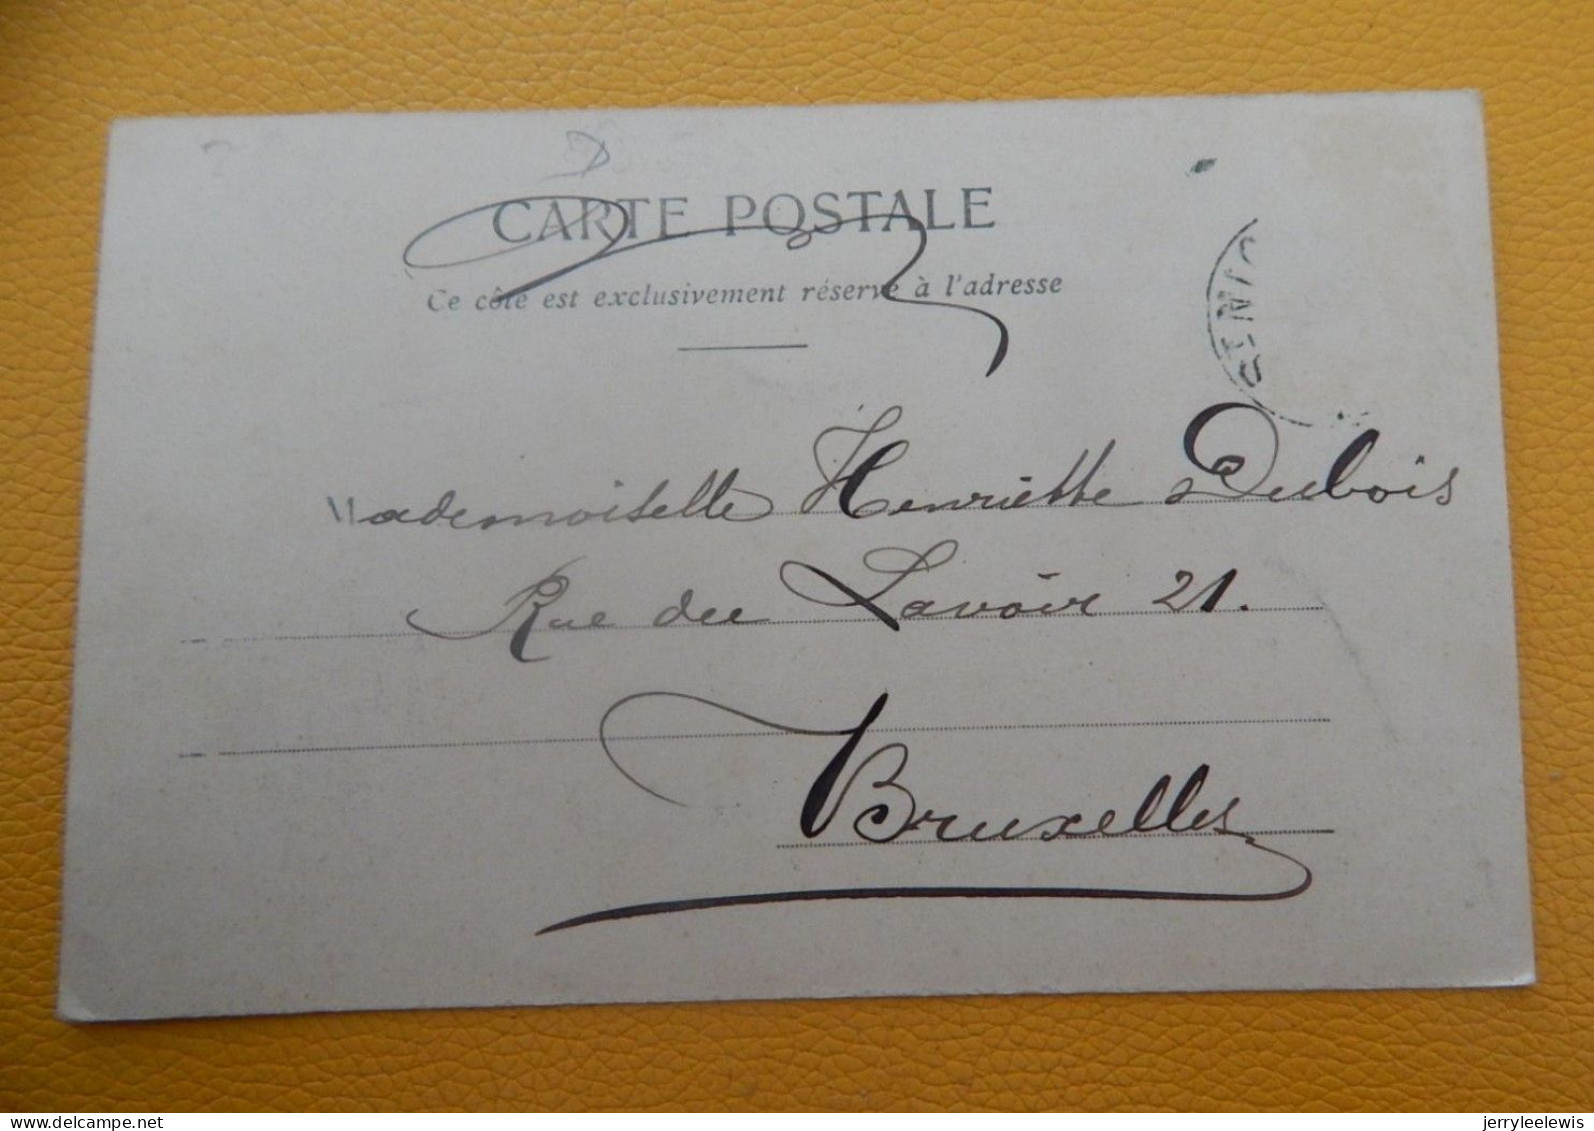 CARTE POSTALE
Ce côté est exclusivement réservé à l'adresse
Mademoiselle Henriette Dubois
Rue du Lavoir 21.
Bruxelles
www.delcampe.net
jerryleelewis